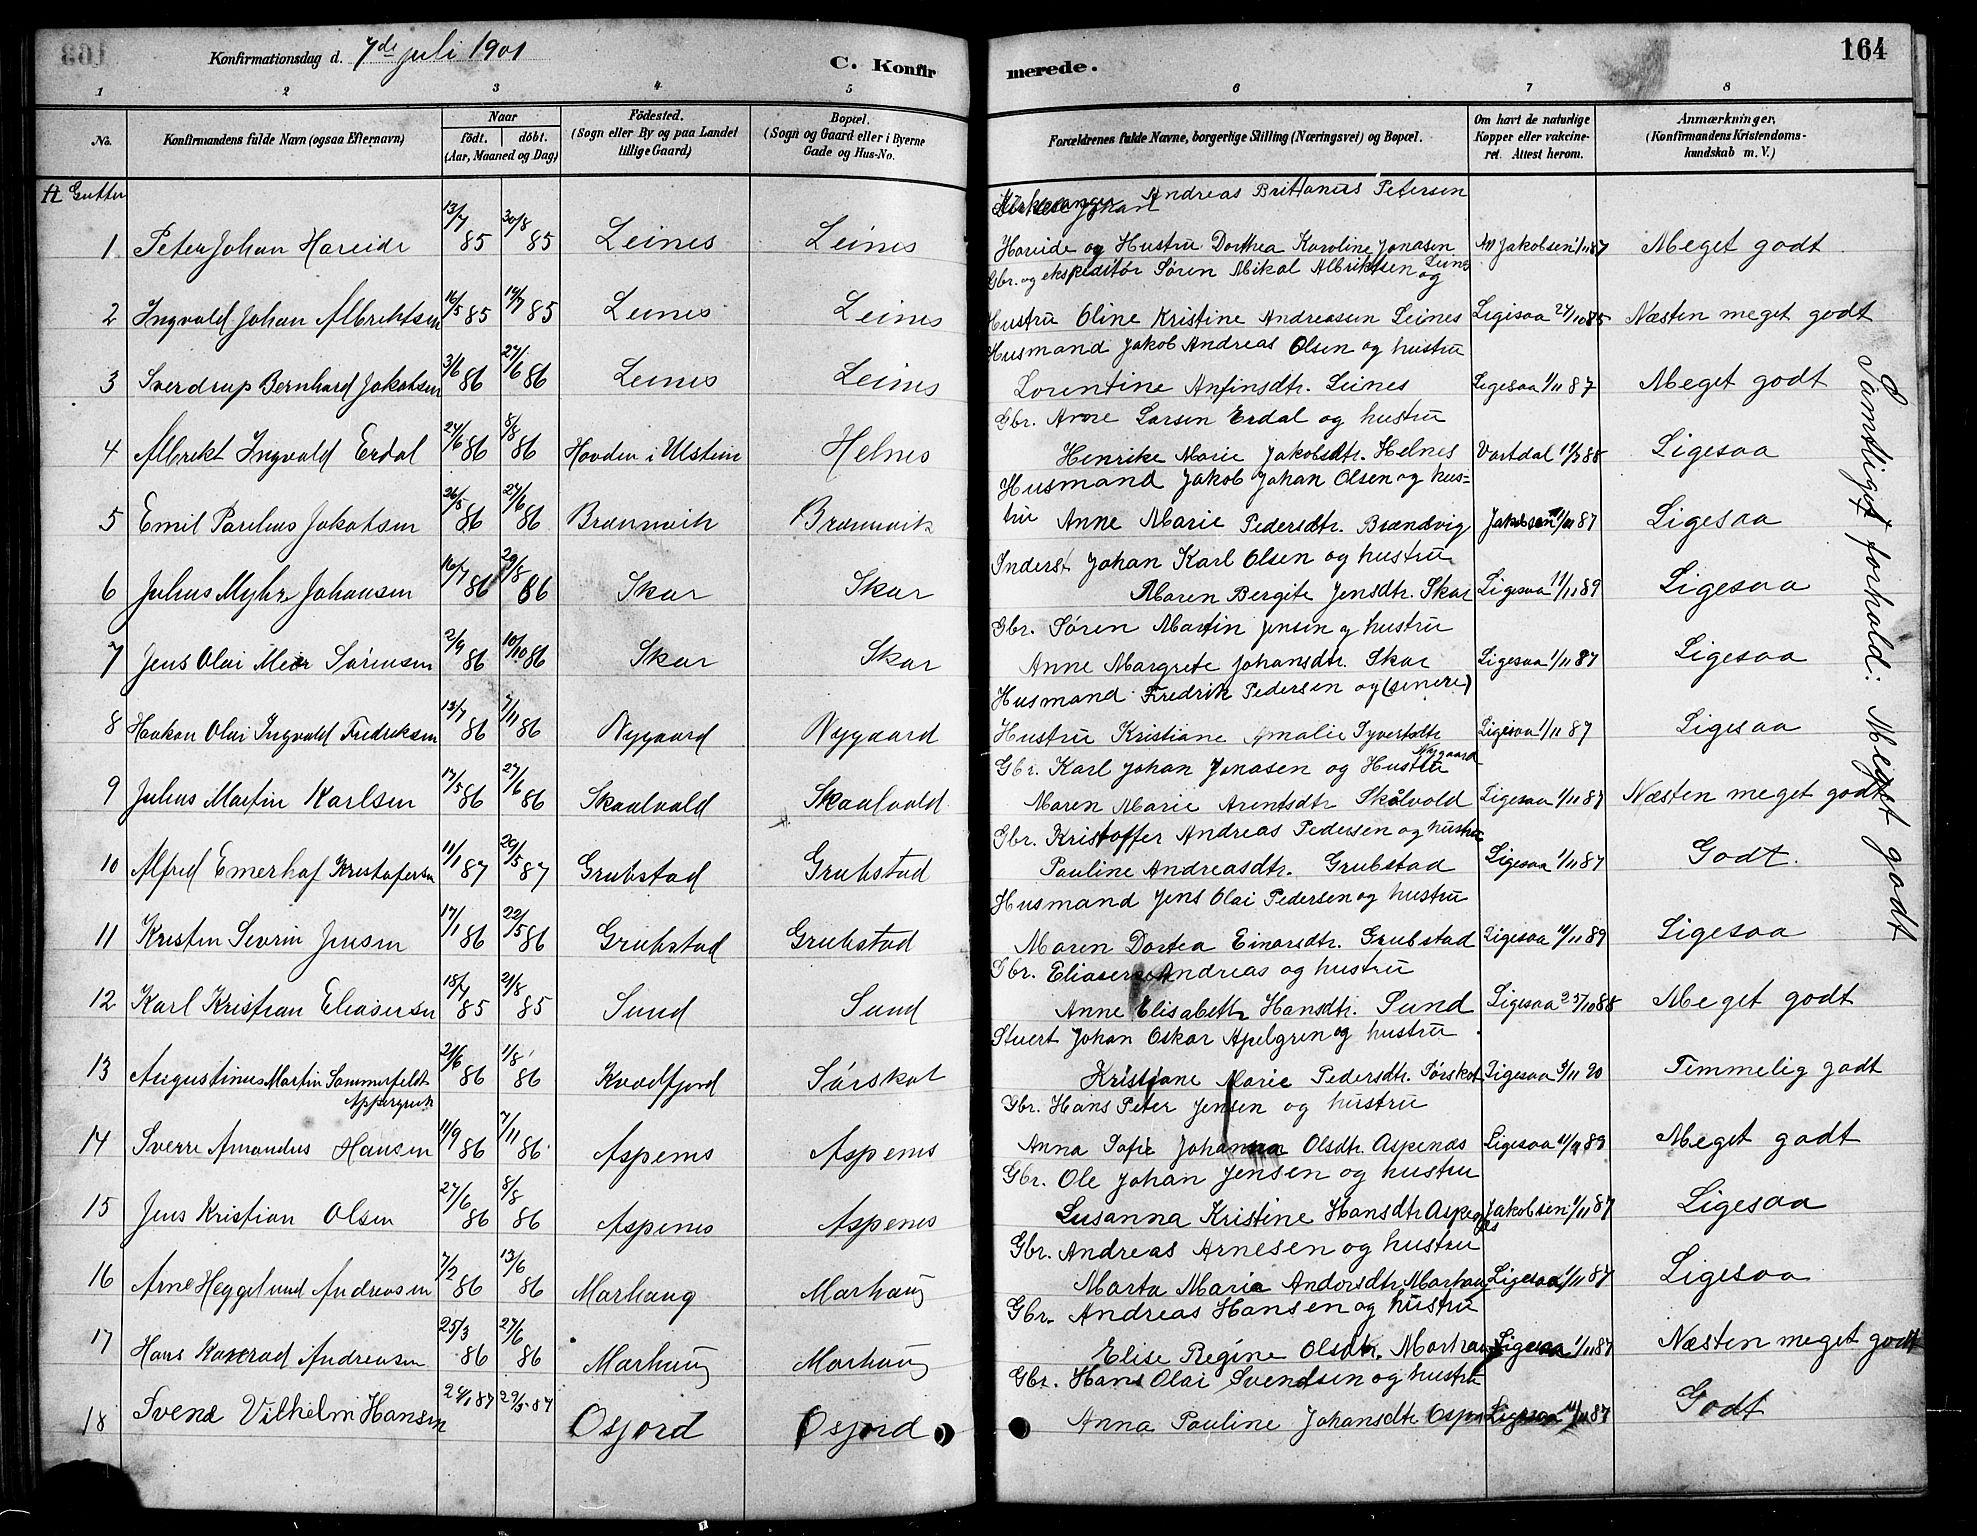 Konfirmationsdag d. 7de juli 1901
C. Konfir
merede.
164
1 2 3 4 5 6 7 8
No.
Konfirmandens fulde Navn (ogsaa Efternavn)
Naar
födt. döbt.
(Aar, Maaned og Dag)
Födested.
(Sogn eller By og paa Landet
tillige Gaard)
Bopæl.
(Sogn og Gaard eller i Byerne
Gade og Hus-No.
Forældrenes fulde Navne, borgerlige Stilling (Næringsvei) og Bopæl.
Om havt de naturlige
Kopper eller vakcine-
ret. Attest herom.
Anmærkninger,
(Konfirmandens Kristendoms-
kundskab m. V.)
Gutter
Andreas Brittanus Petersen
1 Peter Johan Hareide 13/7 85 30/8 85 Leines Leines Hareide og Hustru Dorthea Karoline Jonasen Jakobsen 1/11 87 Meget godt
Gbr. og ekspeditør Søren Mikal Albriktsen Leines og
2 Ingvald Johan Albriktsen 16/5 85 19/7 85 Leines Leines Hustru Oline Kristine Andreasen Leines Ligesaa 27/10 85 Næsten meget godt
Husmand Jakob Andreas Olsen og hustru
3 Sverdrup Bernhard Jakobsen 3/6 86 27/6 86 Leines Leines Lorentine Anfinsdtr. Leines Ligesaa 1/11 87 Meget godt
Gbr. Arne Larsen Erdal og hustru
4 Albrekt Ingvald Erdal 24/6 86 8/8 86 Hovden i Ulstein Helnes Henrike Marie Jakobsdtr. Helnes Vartdal Ligesaa
Husmand Jakob Johan Olsen og hus-
5 Emil Paulus Jakobsen 26/5 86 27/6 86 Brannvik Brannvik tru Anne Marie Pedersdtr. Brændvig Jakobsen 1/11 87 Ligesaa
Inderst Johan Karl Olsen og hustru
6 Julius Myhre Johansen 16/7 86 29/8 86 Skar Skar Maren Bergite Jensdtr. Skar Ligesaa 11/11 89 Ligesaa
Gbr. Søren Martin Jensen og hustru
7 Jens Olai Meier Sørensen 2/9 86 10/10 86 Skar Skar Anne Margrete Johansdtr. Skar Ligesaa 1/11 87 Ligesaa
Husmand Fredrik Pedersen og (senere)
8 Haakon Olai Ingvald Fredriksen 13/7 86 7/11 86 Nygaard Nygaard Hustru Kristiane Amalie Syvertsdtr Ligesaa 1/11 87 Ligesaa
Nygaard
Gbr. Karl Johan Jonasen og Hustru
9 Julius Martin Karlsen 17/5 86 27/6 86 Skaalvold Skaalvold Maren Marie Arentsdtr Skålvold Ligesaa 1/11 87 Næsten meget godt
Gbr. Kristoffer Andreas Pedersen og hustru
10 Alfred Emerhof Kristofersen 11/1 87 20/5 87 Grubstad Grubstad Pauline Andreasdtr. Grubstad Ligesaa 1/11 87 Godt.
Husmand Jens Olai Pedersen og hustru
11 Kristen Sevrin Jensen 17/1 86 22/5 86 Grubstad Grubstad Maren Dortea Einarsdtr. Grubstad Ligesaa 11/11 89 Ligesaa
Gbr. Eliasersen Andreas og hustru
12 Karl Kristian Eliasersen 18/7 85 21/8 85 Sund Sund Anne Elisabeth Hansdtr. Sund Ligesaa 25/10 88 Meget godt
Stuert Johan Oskar Apelgren og hustru
13 Augustinus Martin Sommerfeldt 21/6 86 1/8 86 Kvædfjord Sørskot Kristjane Marie Pedersdtr. Sørskot Ligesaa 3/11 90 Temmelig godt
Appergren
Gbr. Hans Peter Jensen og hustru
14 Sverre Amandus Hansen 11/9 86 7/11 86 Aspenes Aspenes Anna Sofie Johanna Olsdtr. Aspenæs Ligesaa Meget godt
Gbr. Ole Johan Jensen og hustru
15 Jens Kristian Olsen 27/6 86 8/8 86 Aspenes Aspenes Susanna Kristine Hansdtr Aspenæs Jakobsen 1/11 87 Ligesaa
Gbr. Andreas Arnesen og hustru
16 Arne Heggelund Andreasen 7/2 86 13/6 86 Marhaug Marhaug Marta Maria Andersdtr Marhaug Ligesaa 1/11 87 Ligesaa
Gbr. Andreas Hansen og hustru
17 Hans Konrad Andreasen 25/3 86 27/6 86 Marhaug Marhaug Elise Regine Olsdtr. Marhaug Ligesaa 1/11 87 Næsten meget godt
Gbr. Hans Olai Svendsen og hustru
18 Svend Vilhelm Hansen 24/1 87 29/5 87 Osjord Osjord Anna Pauline Johansdtr Ligesaa 1/11 87 Godt
Samtliges forhold: Meget godt